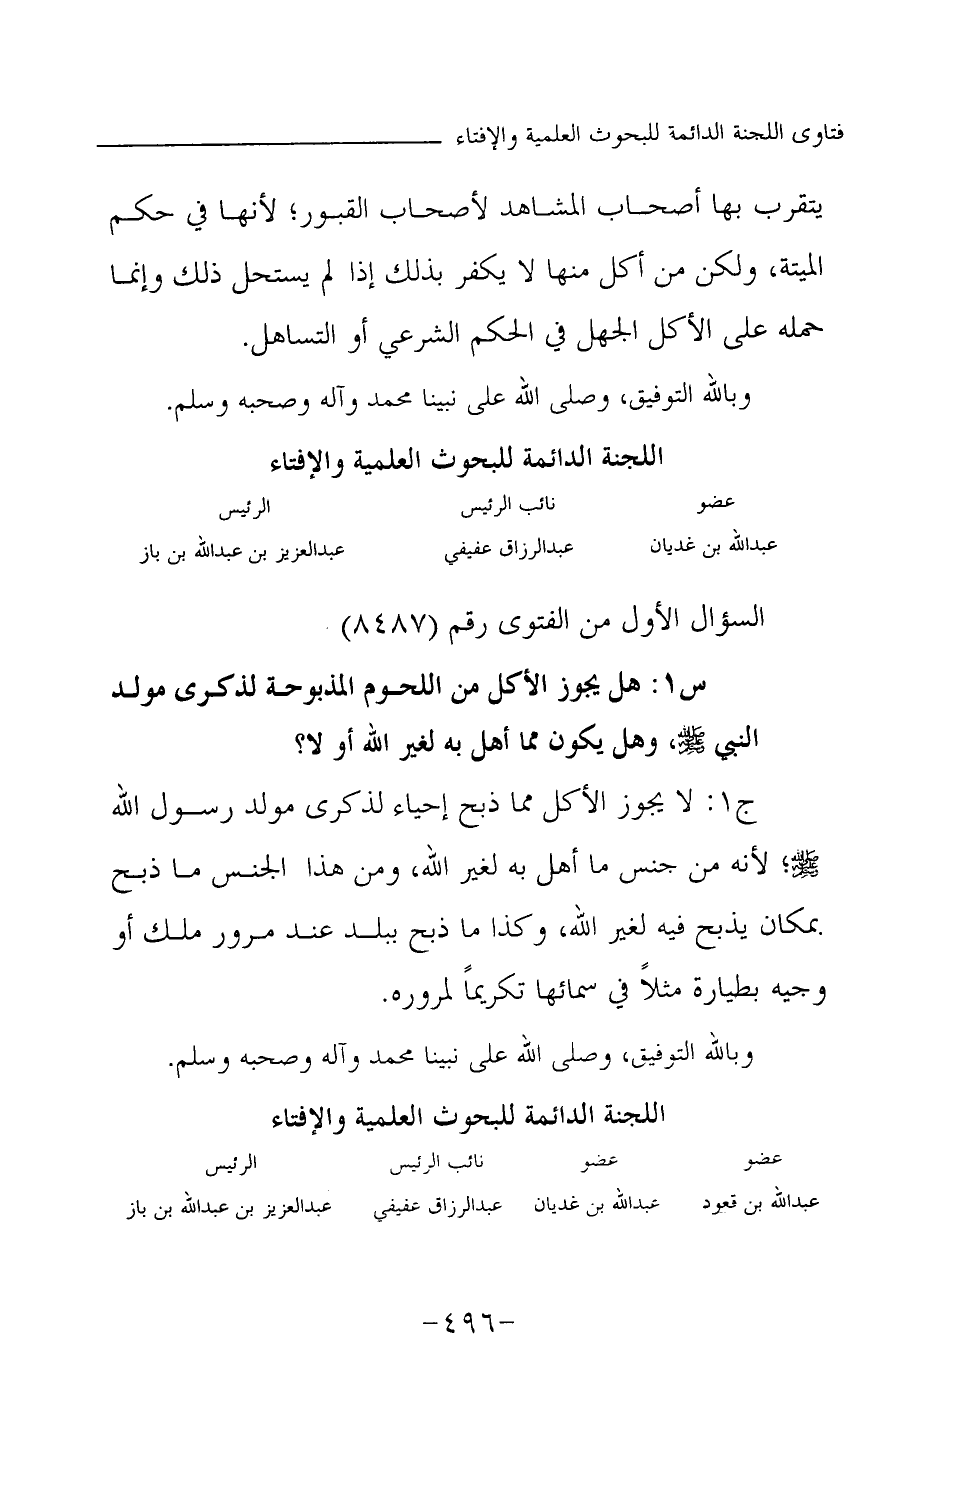 فتاوى اللجنة الدائمة للبحوث العلمية والإفتاء
يتقرب بها أصحاب المشاهد لأصحاب القبور؛ لأنها في حكم
الميتة، ولكن من أكل منها لا يكفر بذلك إذا لم يستحل ذلك وإنما
حمله على الأكل الجهل في الحكم الشرعي أو التساهل.
وبالله التوفيق، وصلى الله على نبينا محمد وآله وصحبه وسلم.
اللجنة الدائمة للبحوث العلمية والإفتاء
عضو نائب الرئيس الرئيس
عبدالله بن غديان عبدالرزاق عفيفي عبدالعزيز بن عبدالله بن باز
السؤال الأول من الفتوى رقم (٨٤٨٧)
س١: هل يجوز الأكل من اللحوم المذبوحة لذكرى مولد
النبي ﷺ، وهل يكون مما أهل به لغير الله أو لا؟
ج١: لا يجوز الأكل مما ذبح إحياء لذكرى مولد رسول الله
ﷺ؛ لأنه من جنس ما أهل به لغير الله، ومن هذا الجنس ما ذبح
بمكان يذبح فيه لغير الله، وكذا ما ذبح ببلد عند مرور ملك أو
وجيه بطيارة مثلاً في سمائها تكريماً لمروره.
وبالله التوفيق، وصلى الله على نبينا محمد وآله وصحبه وسلم.
اللجنة الدائمة للبحوث العلمية والإفتاء
عضو عضو نائب الرئيس الرئيس
عبدالله بن قعود عبدالله بن غديان عبدالرزاق عفيفي عبدالعزيز بن عبدالله بن باز
-٤٩٦-